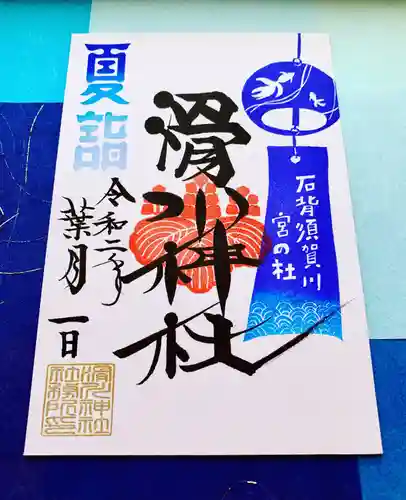 石背須賀川
宮の杜
滑川神社
夏詣
令和二年
葉月一日
滑川神社
社務所印